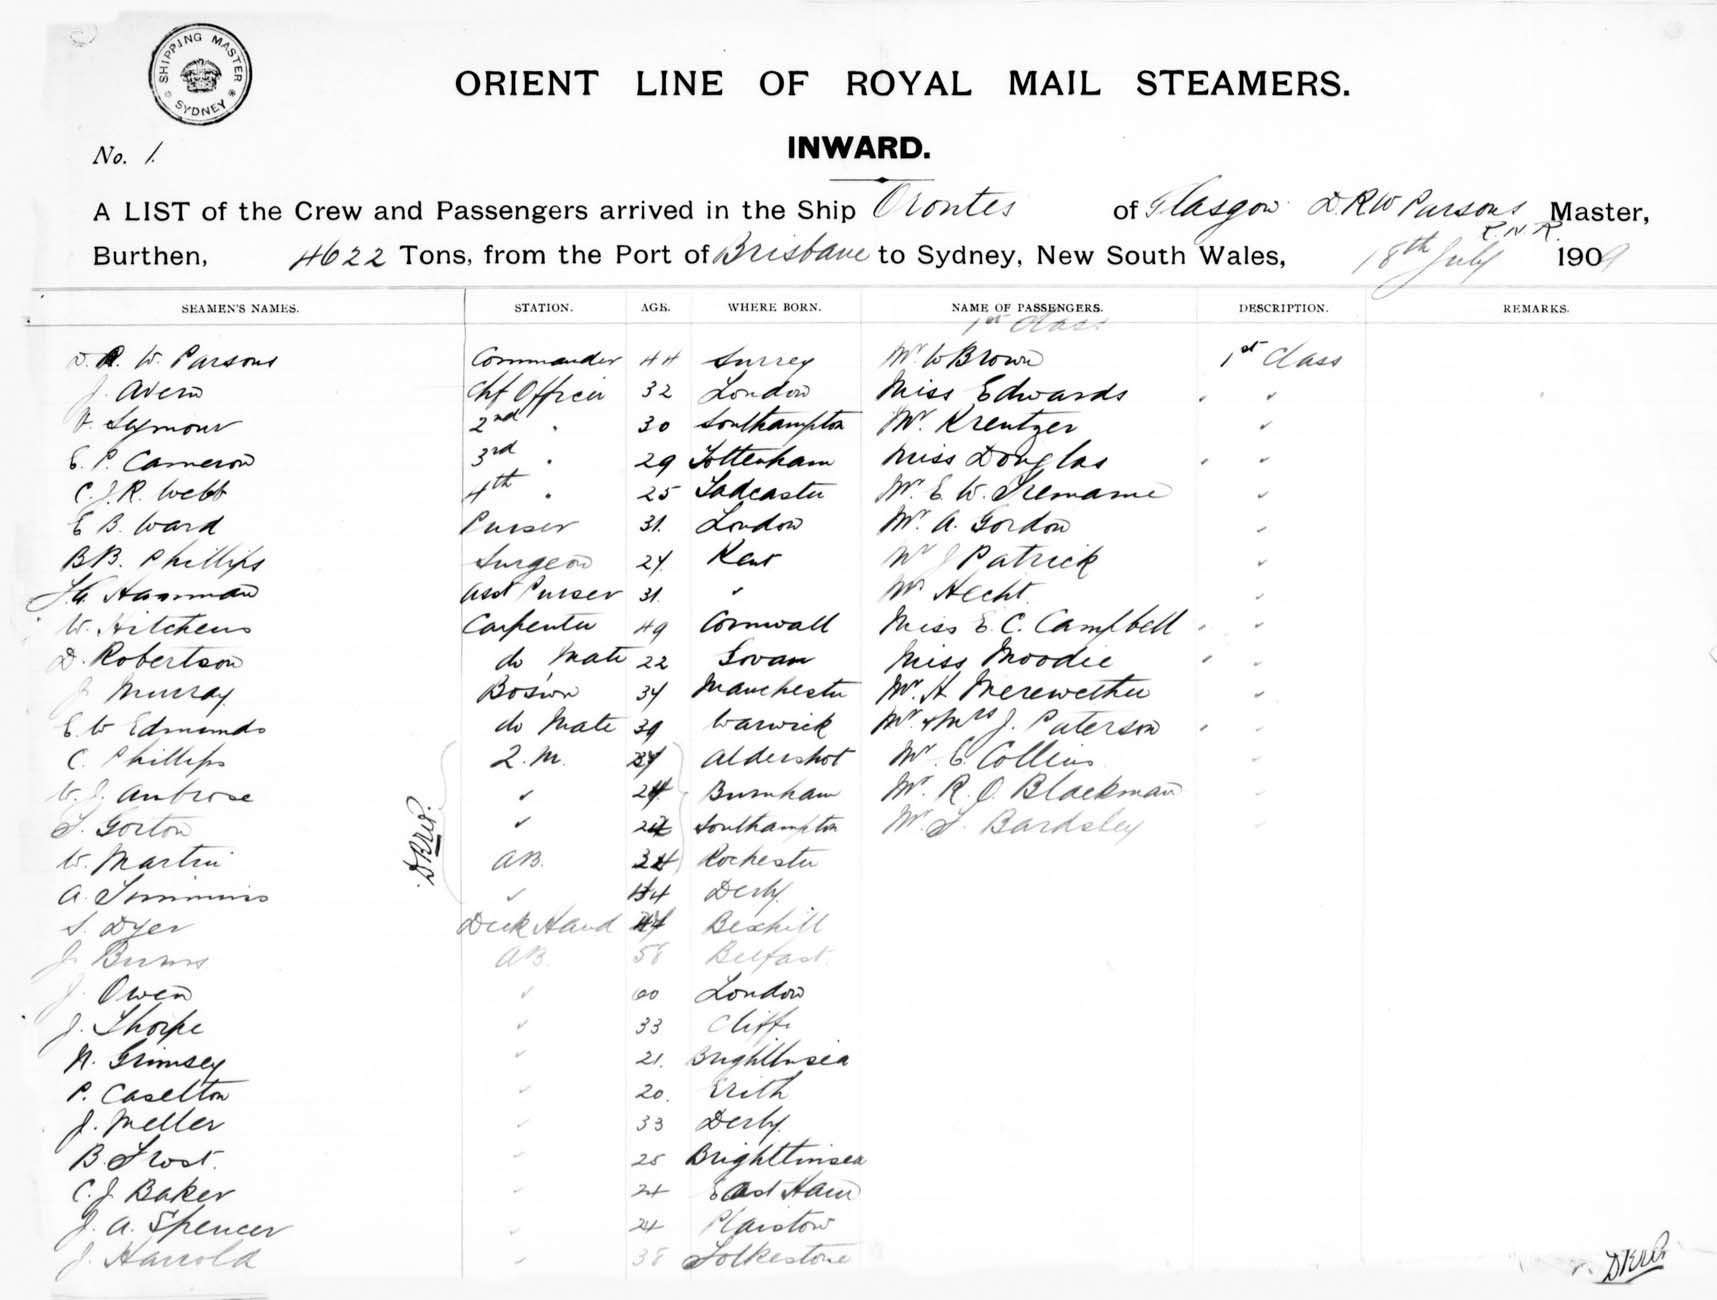 SHIPPING MASTER
SYDNEY
ORIENT LINE OF ROYAL MAIL STEAMERS.
INWARD.
No. 1.
A LIST of the Crew and Passengers arrived in the Ship Orontes of Glasgow D.R.W Parsons R.N.R. Master,
Burthen, 4622 Tons, from the Port of Brisbane to Sydney, New South Wales, 18th July 1909
SEAMEN'S NAMES. STATION. AGE. WHERE BORN. NAME OF PASSENGERS. DESCRIPTION. REMARKS.
1st Class
D. R. W. Parsons Commander 44 Surrey Mr. W Brown 1st Class
J. Avern Chf Officer 32 London Miss Edwards "
Symour 2nd " 30 Southampton Mr. Kreutzer "
E. P. Cameron 3rd " 29 Tottenham Miss Douglas "
C. J. R. Webb 4th " 25 Tadcaster Mr. E. W. "
E B. Ward Purser 31. London Mr. A. Gordon "
B.B. Phillips Surgeon 24. Kent Mr J Patrick "
Asst Purser 31. " Mr Hecht. "
W. Hitchens Carpenter 49 Cornwall Miss E. C. Campbell "
D. Robertson do Mate 22 Miss Moodie "
J. Murray Bos'un 34 Manchester Mr. H. Merewether "
E. W Edmunds do Mate 39 Warwick Mr. & Mrs J. Paterson "
C. Phillips Q. M. Aldershot Mr. E. Collins "
W. J. Ambrose " Burnham Mr. R. O. Blackman "
T. Gorton " Southampton Mr. T. Bardsley "
W. Martin AB. Rochester
A. Timmins " Derby.
S. Dyer Deck Hand Bexhill
J. Burns AB. 58 Belfast.
J. Owen " 60 London
J. Thorpe " 33 Cliffe
N. Grimsey " 21. Brightlinsea
P. Caselton " 20. Erith
J. Meller " 33 Derby.
B. Frost. " 25 Brightlinsea
C. J. Baker " 24 East Ham
J. A. Spencer " 24 Plaistow
J. Harrold " 38 Folkestone
D.R.W.P.
D.R.W.P.